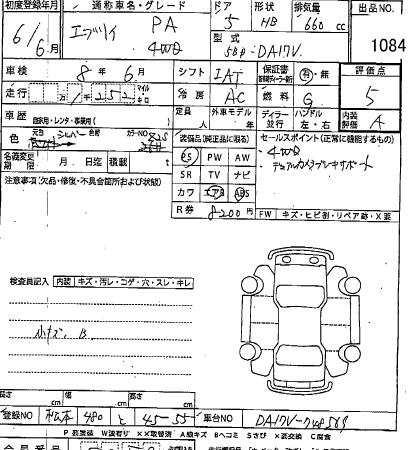 初度登録年月 通称車名・グレード ドア 形状 排気量 出品NO
6/6月 エブリイ PA 4WD 5 HB 660 cc
型式 5BD-DA17V 1084
車検 8年 6月 シフト IAT 保証書 有・無 評価点
走行 1252 マイル キロ 冷房 AC 燃料 G 5
車歴 自家用・レンタ・事業用( ) 定員 人 外車モデル ディーラー 並行 ハンドル 左・右 内装評価 A
色 元色 シルバー 色替 カラーNO
装備品(純正品に限る) セールスポイント(正常に機能するもの)
名義変更期限 月 日迄 積載 t
PS PW AW ・4WD
SR TV ナビ ・デュアルカメラブレーキサポート
注意事項(欠品・修復・不具合箇所および状態)
カワ エアB ABS
R券 8200円 FW キズ・ヒビ割・リペア跡・X要
検査員記入 内装 キズ・汚レ・コゲ・穴・スレ・キレ
小キズ B
長さ cm 幅 cm 高さ cm
登録NO 松本 480 と 45-55 車台NO
P 要塗装 W波有り ××取替済 A線キズ Bヘコミ Sさび ×要交換 C腐食
会員番号